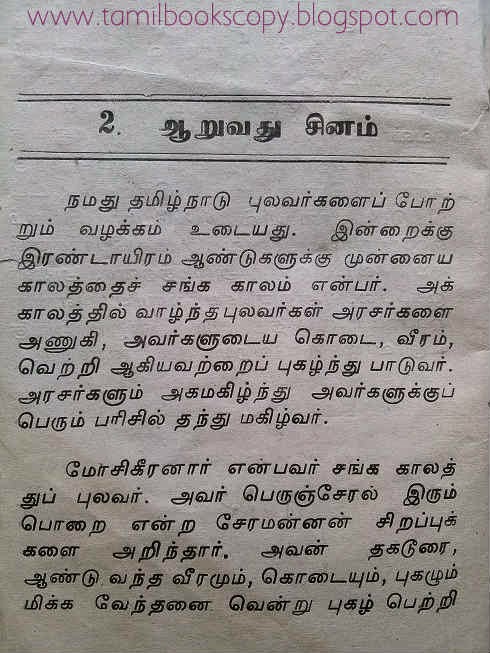 www.tamilbookscopy.blogspot.com
2. ஆறுவது சினம்
நமது தமிழ்நாடு புலவர்களைப் போற்
றும் வழக்கம் உடையது. இன்றைக்கு
இரண்டாயிரம் ஆண்டுகளுக்கு முன்னைய
காலத்தைச் சங்க காலம் என்பர். அக்
காலத்தில் வாழ்ந்த புலவர்கள் அரசர்களை
அணுகி, அவர்களுடைய கொடை, வீரம்,
வெற்றி ஆகியவற்றைப் புகழ்ந்து பாடுவர்.
அரசர்களும் அகமகிழ்ந்து அவர்களுக்குப்
பெரும் பரிசில் தந்து மகிழ்வர்.
மோசிகீரனார் என்பவர் சங்க காலத்
துப் புலவர். அவர் பெருஞ்சேரல் இரும்
பொறை என்ற சேரமன்னன் சிறப்புக்
களை அறிந்தார். அவன் தகடூரை,
ஆண்டு வந்த வீரமும், கொடையும், புகழும்
மிக்க வேந்தனை வென்று புகழ் பெற்றி